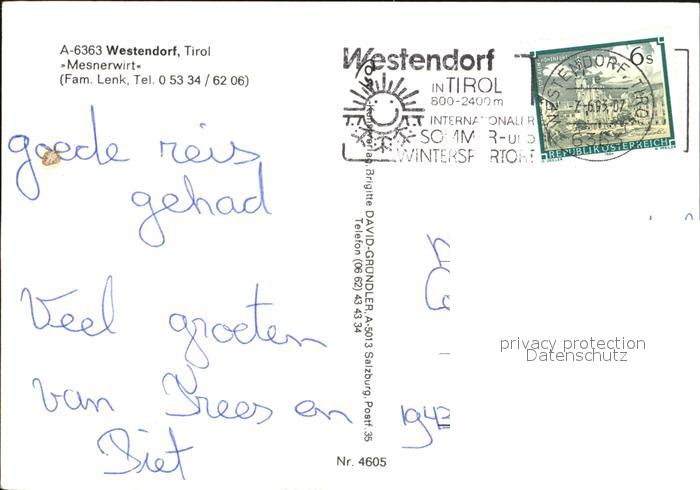 A-6363 Westendorf, Tirol
»Mesnerwirt«
(Fam. Lenk, Tel. 0 53 34 / 62 06)
goede reis
gehad
Veel groeten
van Drees en
Diet
Westendorf
IN TIROL
800-2400m
INTERNATIONALER
SOMMER- UND
WINTERSPORTORT
6s
WESTENDORF, TIROL
REPUBLIK ÖSTERREICH
Kunstverlag Brigitte DAVID-GRÜNDLER, A-5013 Salzburg, Postf. 35
Telefon (06 62) 43 43 34
194
privacy protection
Datenschutz
Nr. 4605